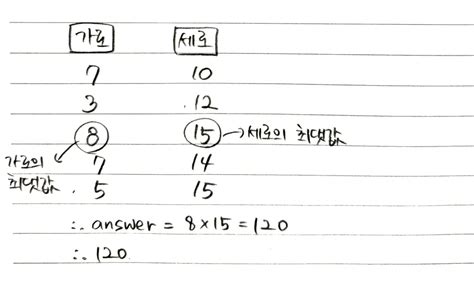 가로 세로
7 10
3 12
8 15 → 세로의 최댓값
가로의 7 14
최댓값 5 15
∴ answer = 8 × 15 = 120
∴ 120